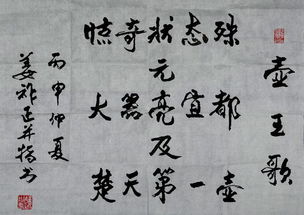 壶王歌
殊都壶
态宜一
状元亮及第
奇器天
大楚
丙申仲夏
姜祚正并撰书